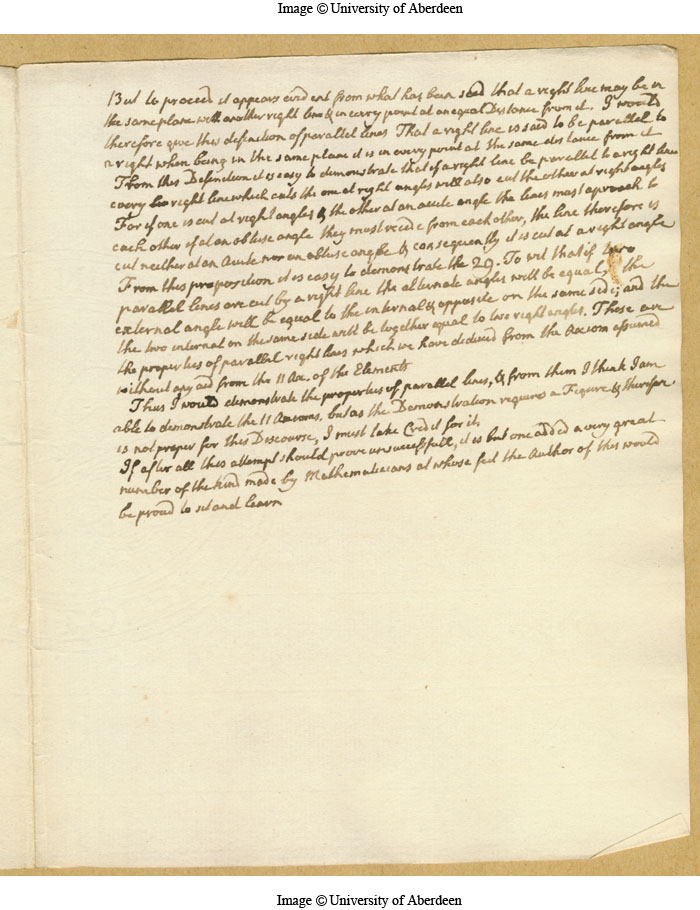 Image © University of Aberdeen
But to proceed it appears evident from what has been said that a right line may be in
the same plane with another right line & in every point at an equal Distance from it. I would
therefore give this definition of parallel lines That a right line is said to be parallel to
a right when being in the same plane it is in every point at the same distance from it
From this Definition it is easy to demonstrate that if a right line be parallel to a right line
every right line which cuts the one at right angles will also cut the other at right angles
For if one is cut at right angles & the other at an acute angle the lines must aproach to
each other if at an obtuse angle they must recide from each other, the line therefore is
cut neither at an Acute nor an obtuse angle & consequently it is cut at a right angle
From this proposition it is easy to demonstrate the 29. To wit that if two
parallel lines are cut by a right line the alternate angles will be equal, the
external angle will be equal to the internal & opposite on the same side; and the
the two internal on the same side will be together equal to two right angles. These are
the properties of parallel right lines which we have deduced from the Axiom assumed
without any aid from the 11 Ax. of the Elements
Thus I would demonstrate the properties of parallel lines, & from them I think I am
able to demonstrate the 11 Axiom. but as the Demonstration requires a Figure & therefore
is not proper for this Discourse, I must take Credit for it.
If after all this attempt should prove unsuccessfull, it is but one added a very great
number of the kind made by Mathematicians at whose feet the Author of this would
be proud to sit and learn
Image © University of Aberdeen